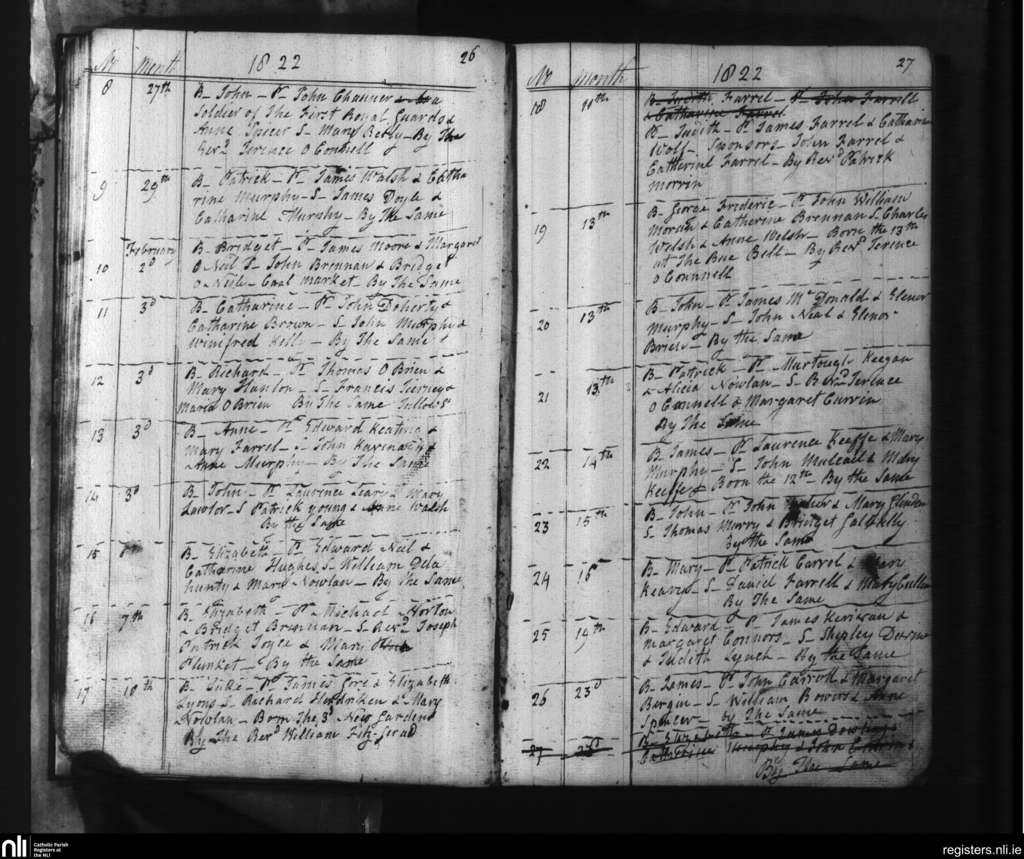 Nr Month 1822 26
8 27th B- John - Pr John Channer a
Soldier of The First Royal Guards &
Anne Spicer S- Mary Betty - By The
Revd. Terence O Connell
9 29th B- Patrick - Pr James Walsh & Catha
rine Murphy - S- James Doyle &
Catharine Murphy - By The Same
February B- Bridget - Pr James Moore & Margaret
10 2d O Neil S- John Brennan & Bridget
O Neile - Coal Market - By The Same
11 3d B- Catharine - Pr John Doherty &
Catharine Brown - S- John Murphy &
Winifred Kelly - By The Same
12 3d B- Richard - Pr Thomas O Brien &
Mary Hanlon - S- Francis Tierney &
Maria O Brien By The Same
13 3d B- Anne - Pr Edward Keating &
Mary Farrel - S- John Kavinagh &
Anne Murphy - By The Same
14 3d B- John - Pr Laurence Leary & Mary
Lawlor - S Patrick young & Anne Walsh
By the Same
15 B- Elizabeth - Pr Edward Neil &
Catharine Hughes S- William Dela
hunty & Mary Nowlan - By The Same
16 7th B- Elizabeth - Pr Michael Norton
& Bridget Brennan - S- Revd. Joseph
Patrick Joyce & Mary
Plunket - By the Same
17 10th B- Luke - Pr James Core & Elizabeth
Lyons S- Richard Hendriken & Mary
Nowlan - Born The 3d New Gardens
By The Revd William Fitz-gerald
Nr Month 1822 27
18 11th B- Judith Farrel - Pr John Farrell
& Catharine Farrel
B- Judith - Pr James Farrel & Catharine
Wolf - Sponsors John Farrel &
Catherine Farrel - By Revd Patrick
Morrin
19 13th B- George Frederic - Pr John William
Moran & Catherine Brennan S- Charles
Welsh & Anne Welsh - Born the 13th
at The Blue Bell - By Revd Terence
O Connnell
20 13th B- John - Pr James Mc Donald & Elenor
Murphy - S- John Neal & Elenor
Briel - By the Same
21 13th B- Patrick - Pr Murtough Keegan
& Alicia Nowlan - S- Revd Terence
O Connell & Margaret Curren
By The Same
22 14th B- James - Pr Laurence Keeffe & Mary
Murphy - S- John Muleall & Mary
Keeffe - Born the 12th - By the Same
23 15th B- John - Pr John & Mary
S- Thomas Murry & Bridget
By the Same
24 16 B- Mary - Pr Patrick Carrol &
S- Daniel Farrell & Mary Cullen
By The Same
25 19th B- Edward - Pr James Kerivan &
Margaret Connors - S- Shepley
& Judith Lynch - By the Same
26 23d B- James - Pr John Carrol & Margaret
Bergin - S- William Bowers & Anne
Spencer - by The Same
27 23d B- Elizabeth - Pr James Dowling
Murphy & John
By The Same
nli Catholic Parish
Registers at
the NLI
registers.nli.ie